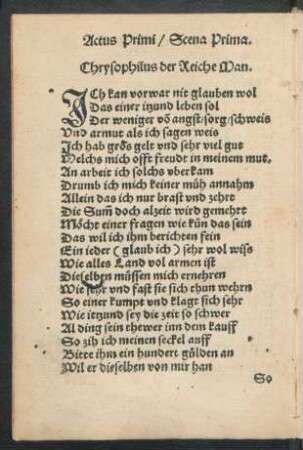 Actus Primi / Scena Prima.
Chrysophilus der Reiche Man.
ICh kan vorwar nit glauben wol
Das einer itzund leben sol
Der weniger vō angst/sorg/schweis
Vnd armut als ich sagen weis
Ich hab gros gelt vnd sehr viel gut
Welchs mich offt freudt in meinem mut.
An arbeit ich solchs vberkam
Drumb ich mich keiner müh annahm
Allein das ich nur brast vnd zehrt
Die Sum̄ doch alzeit wird gemehrt
Möcht einer fragen wie kün das sein
Das wil ich ihm berichten fein
Ein ieder (glaub ich) sehr wol wiss
Wie alles Land vol armen ist
Dieselben müssen mich ernehren
Wie sehr vnd fast sie sich thun wehrn
So einer kumpt vnd klagt sich sehr
Wie itzund sey die zeit so schwer
Al ding sein thewer inn dem kauff
So zih ich meinen seckel auff
Bitte ihm ein hundert gülden an
Wil er dieselben von mir han
So